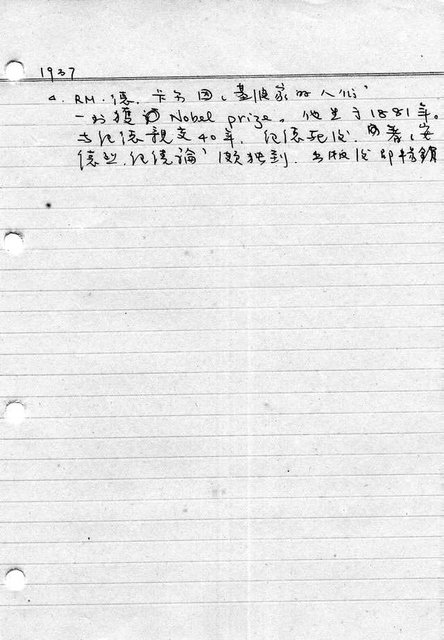 1937
4. RM.德.卡尔因「基伯家的人们」
一书獲 Nobel prize。他生于1881年。
与纪德親交40年. 纪德死后. 著「安
德烈.纪德論」頗独到. 出版后即